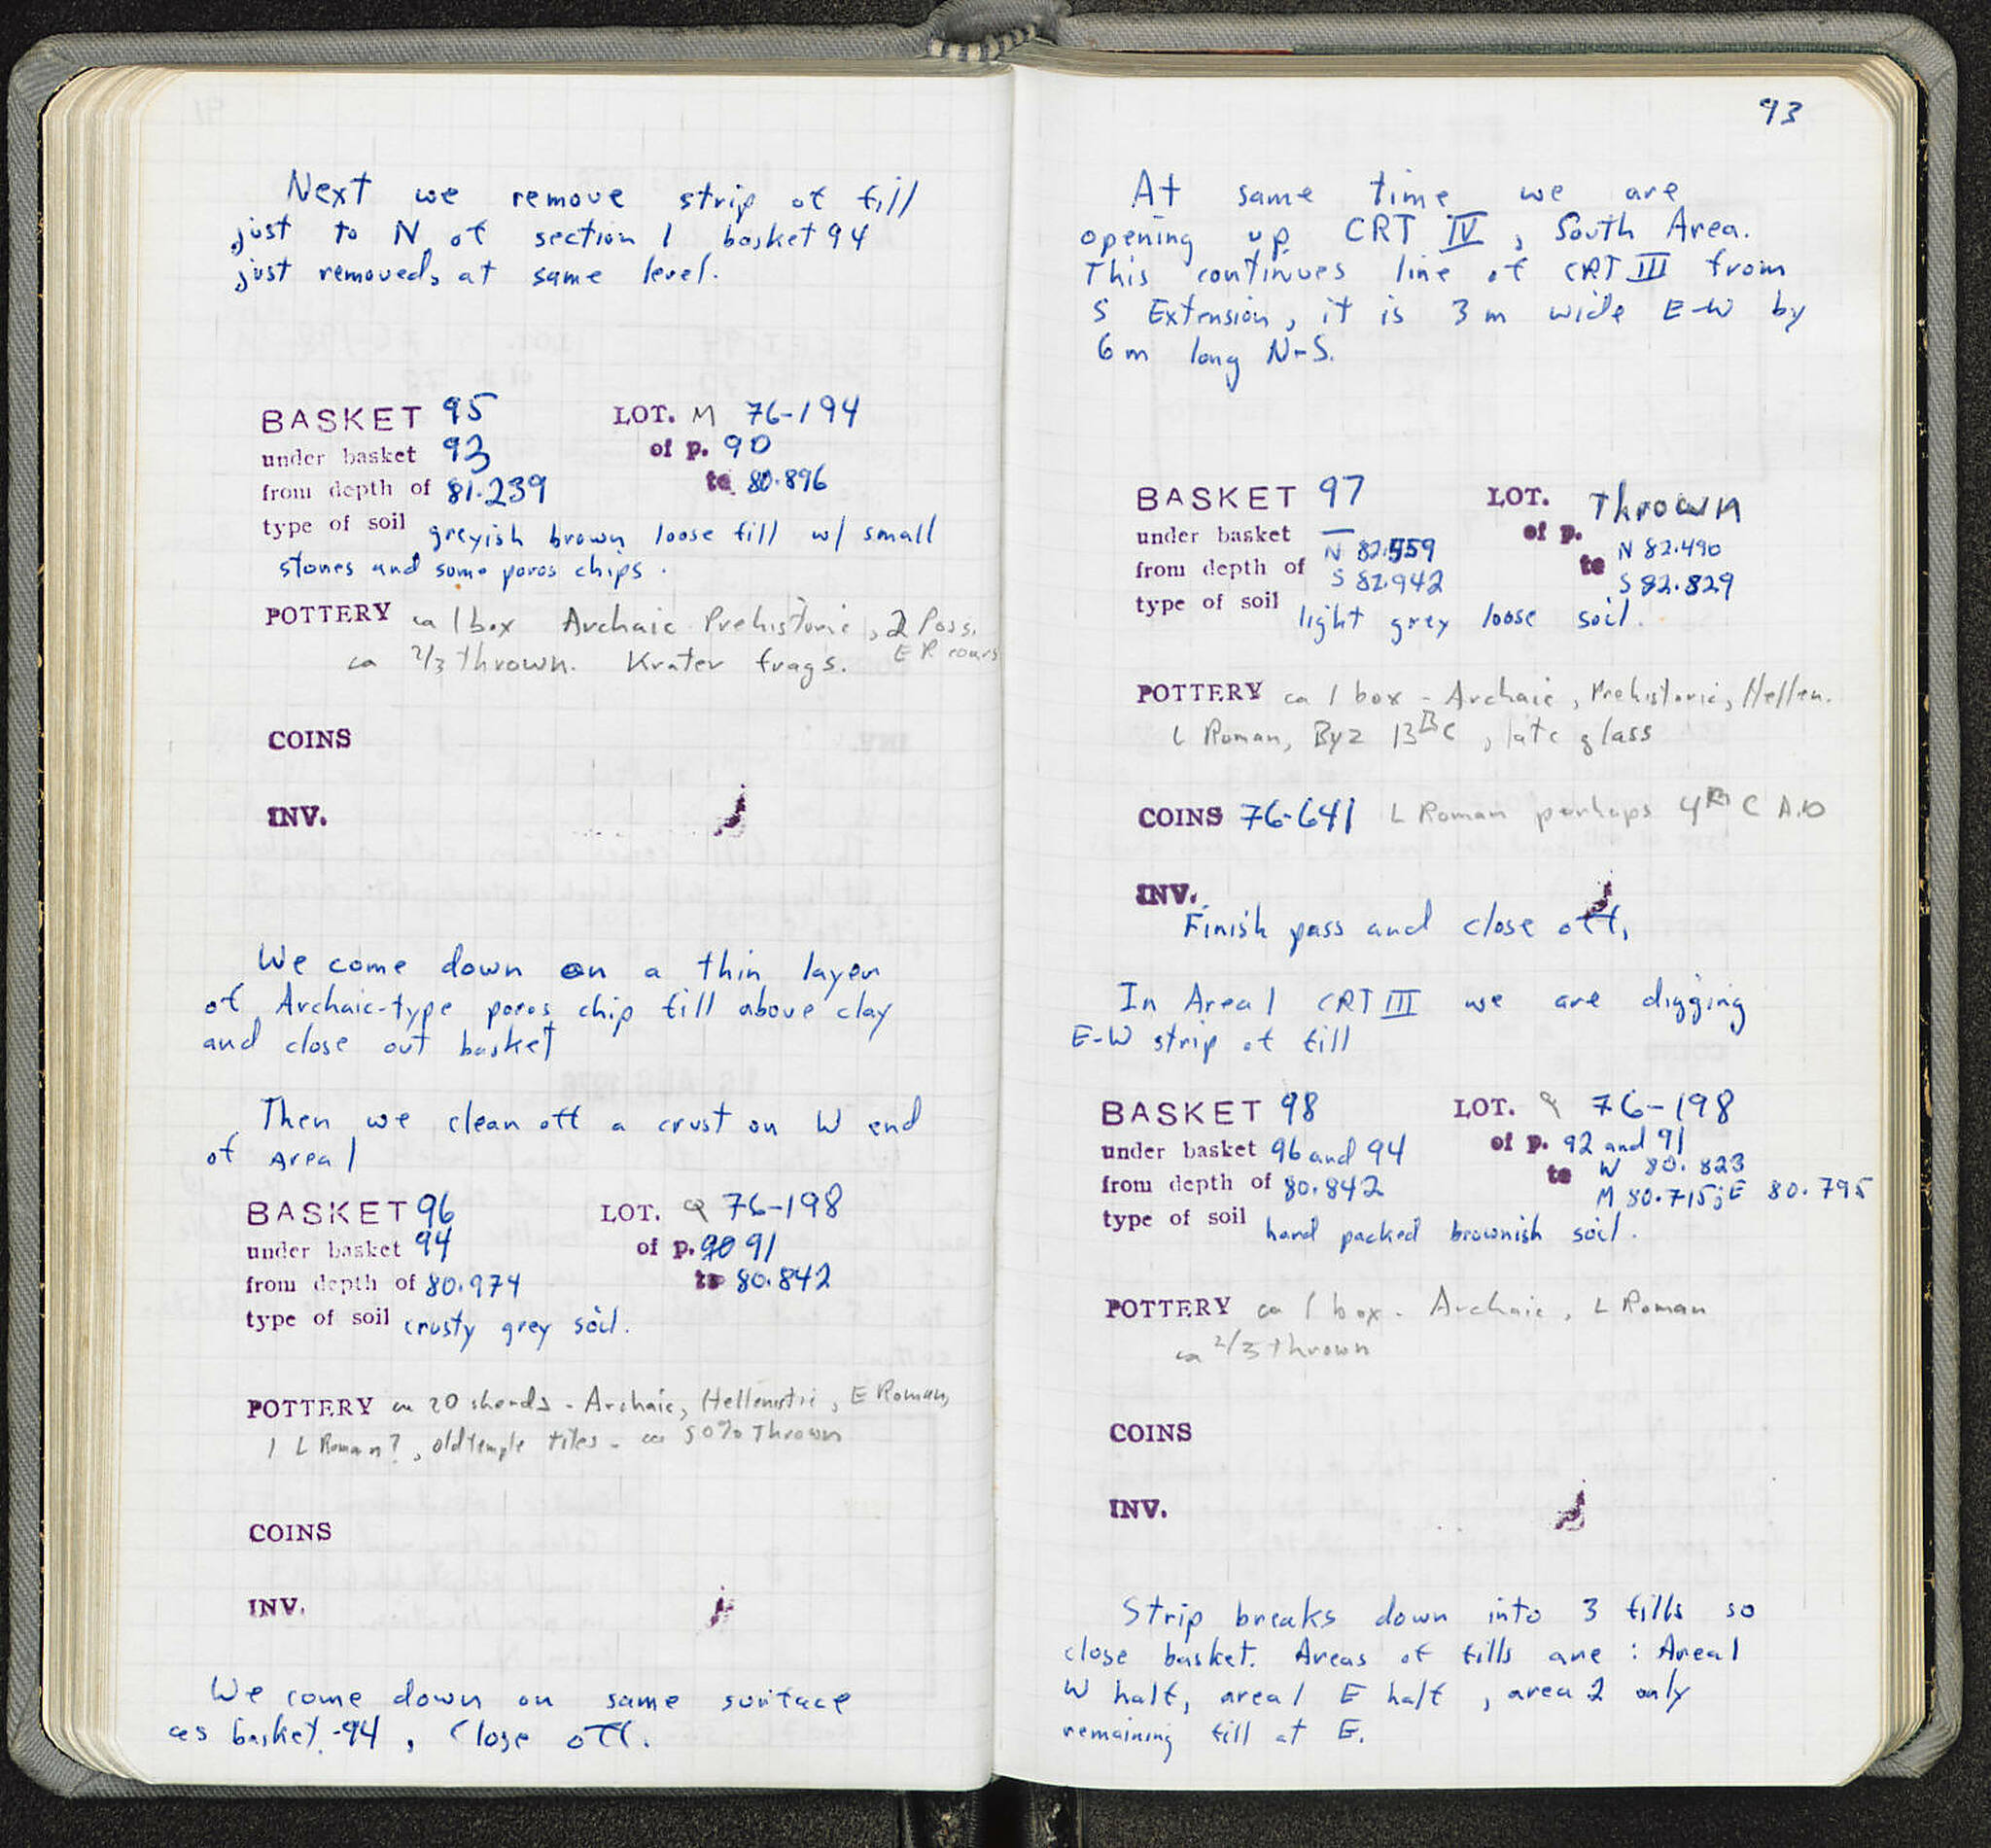 Next we remove strip of fill
just to N of section 1 basket 94
just removed, at same level.
BASKET 95 LOT. M 76-194
under basket 93 of p. 90
from depth of 81.239 to 80.896
type of soil greyish brown loose fill w/ small
stones and some poros chips.
POTTERY ca 1 box Archaic Prehistoric, 2 Poss.
E R coars
ca 2/3 thrown. Krater frags.
COINS
INV.
We come down on a thin layer
of Archaic-type poros chip fill above clay
and close out basket
Then we clean off a crust on W end
of Area 1
BASKET 96 LOT. 9 76-198
under basket 94 of p. 90 91
from depth of 80.974 to 80.842
type of soil crusty grey soil.
POTTERY ca 20 sherds - Archaic, Hellenistic, E Roman,
1 L Roman?, old temple tiles - ca 50% thrown
COINS
INV.
We come down on same surface
as basket 94, close off.
93
At same time we are
opening up CRT IV, South Area.
This continues line of CRT III from
S Extension, it is 3 m wide E-W by
6 m long N-S.
BASKET 97 LOT. Thrown
under basket — of p.
from depth of N 82.559 to N 82.490
S 82.942 S 82.829
type of soil light grey loose soil.
POTTERY ca 1 box - Archaic, Prehistoric, Hellen.
L Roman, Byz 13th C, late glass
COINS 76-641 L Roman perhaps 4th C A.D
INV.
Finish pass and close off.
In Area 1 CRT III we are digging
E-W strip of fill
BASKET 98 LOT. 9 76-198
under basket 96 and 94 of p. 92 and 91
from depth of 80.842 to W 80.823
M 80.715; E 80.795
type of soil hard packed brownish soil.
POTTERY ca 1 box - Archaic, L Roman
ca 2/3 thrown
COINS
INV.
Strip breaks down into 3 fills so
close basket. Areas of fills are: Area 1
W half, area 1 E half, area 2 only
remaining fill at E.